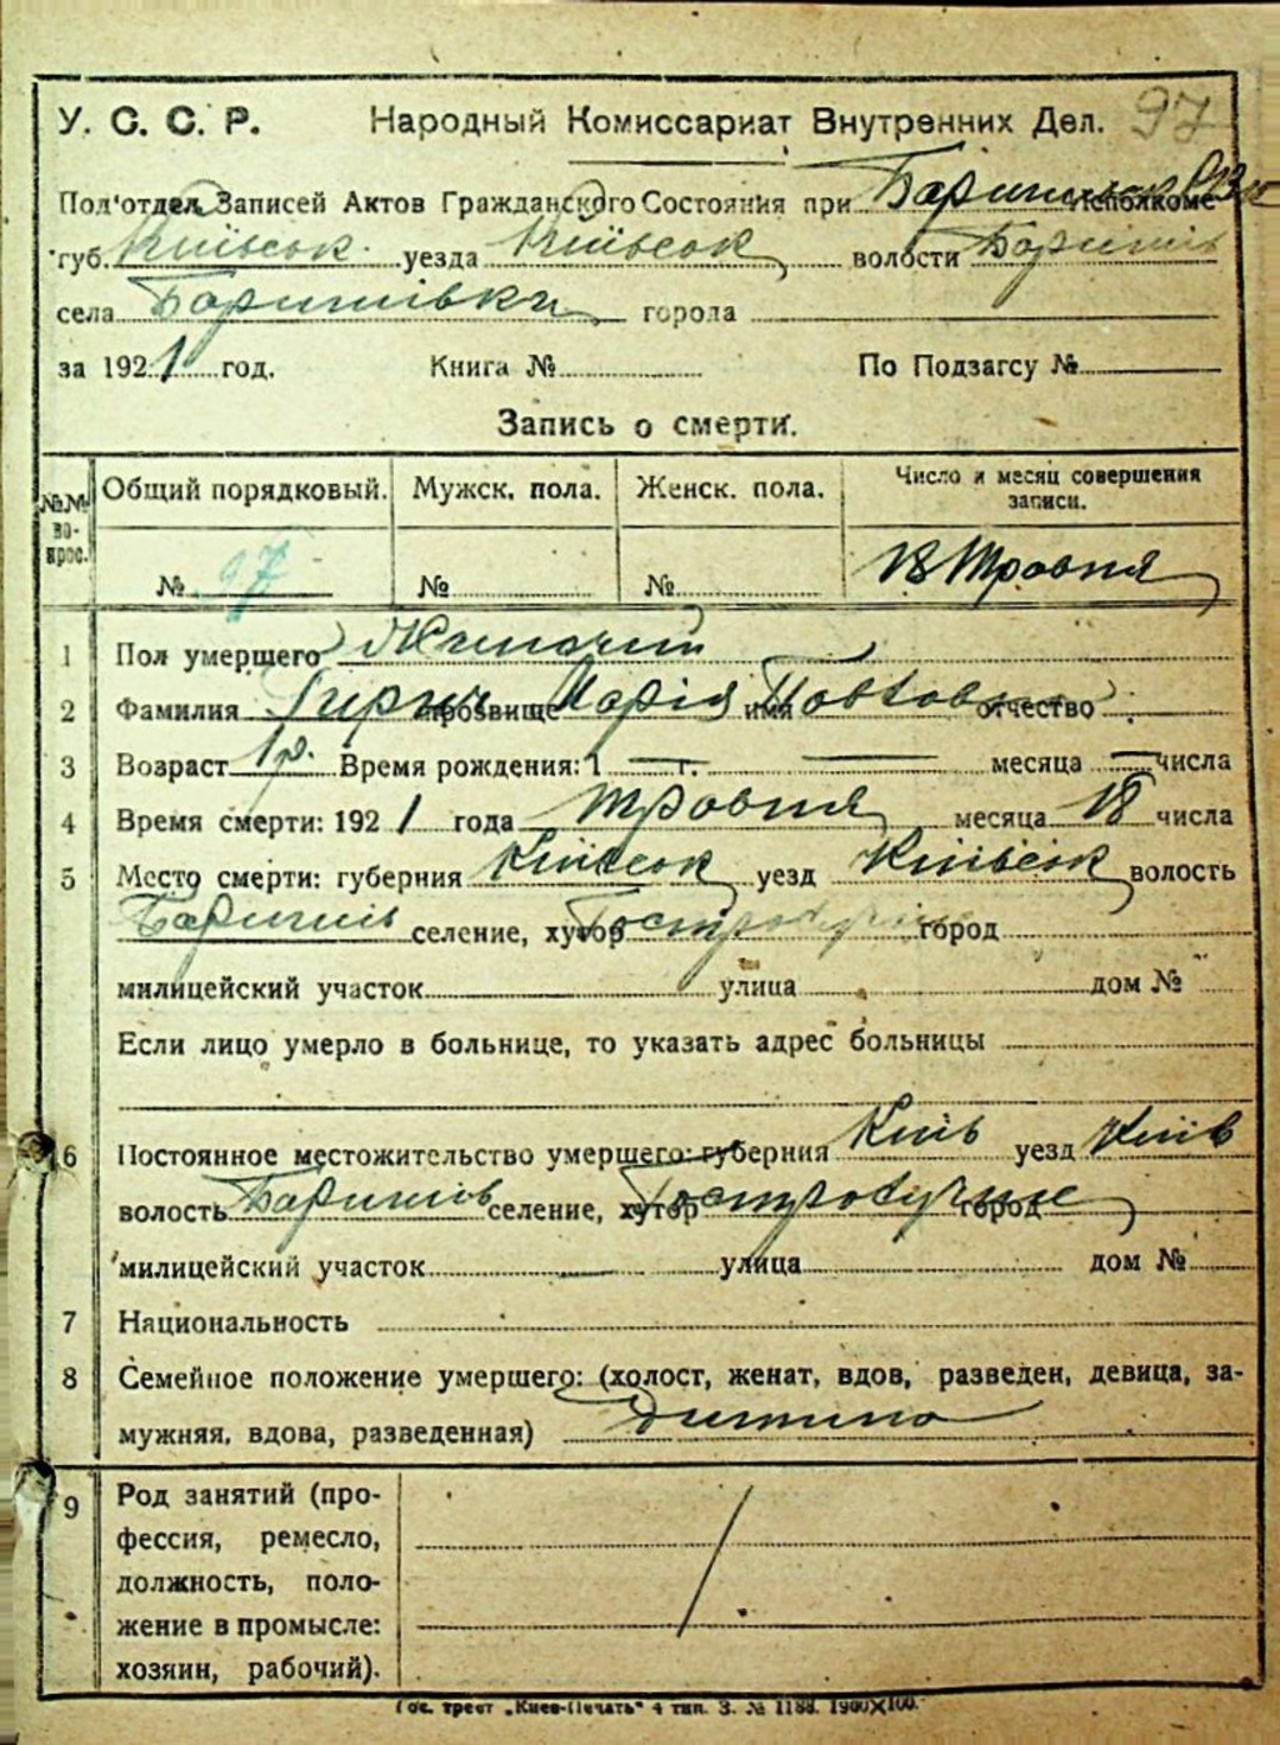 97
У. С. С. Р. Народный Комиссариат Внутренних Дел.
Под'отдел Записей Актов Гражданского Состояния при Исполкоме
губ. Київськ. уезда Київськ волости Баришів
села Баришівки города
за 1921 год. Книга № По Подзагсу №
Запись о смерти.
№№ вопрос. Общий порядковый. Мужск. пола. Женск. пола. Число и месяц совершения записи.
№ 97 № № 18 Травня
1 Пол умершего Жиночий
2 Фамилия прозвище Марія имя отчество
3 Возраст 1 р. Время рождения: 1 — г. — месяца — числа
4 Время смерти: 1921 года Травня месяца 18 числа
5 Место смерти: губерния Київськ уезд Київськ волость
Баришів селение, хутор город
милицейский участок улица дом №
Если лицо умерло в больнице, то указать адрес больницы
6 Постоянное местожительство умершего: губерния Київ уезд Київ
волость Баришів селение, хутор город
милицейский участок улица дом №
7 Национальность
8 Семейное положение умершего: (холост, женат, вдов, разведен, девица, за-
мужняя, вдова, разведенная) Дитина
9 Род занятий (про-
фессия, ремесло,
должность, поло-
жение в промысле:
хозяин, рабочий).
Гос. трест „Киев-Печать" 4 тип. З. № 1188. 1900×100.